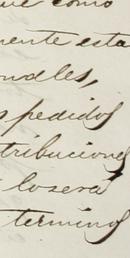 como
mente esta
onales,
pedidos
tribuciones
losera
termino